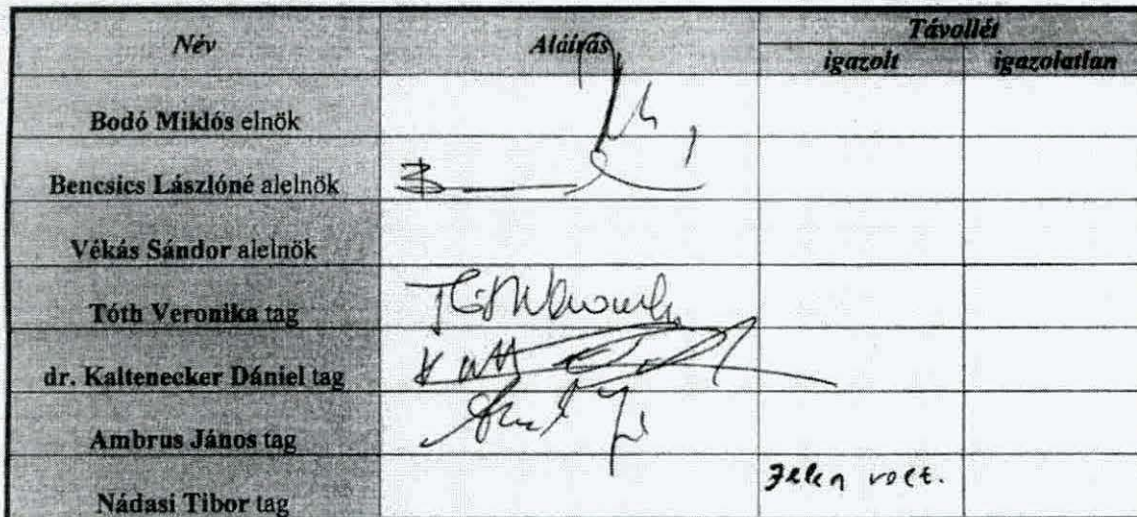 Név Aláírás Távollét
igazolt igazolatlan
Bodó Miklós elnök
Bencsics Lászlóné alelnök
Vékás Sándor alelnök
Tóth Veronika tag
dr. Kaltenecker Dániel tag
Ambrus János tag
Jelen volt.
Nádasi Tibor tag